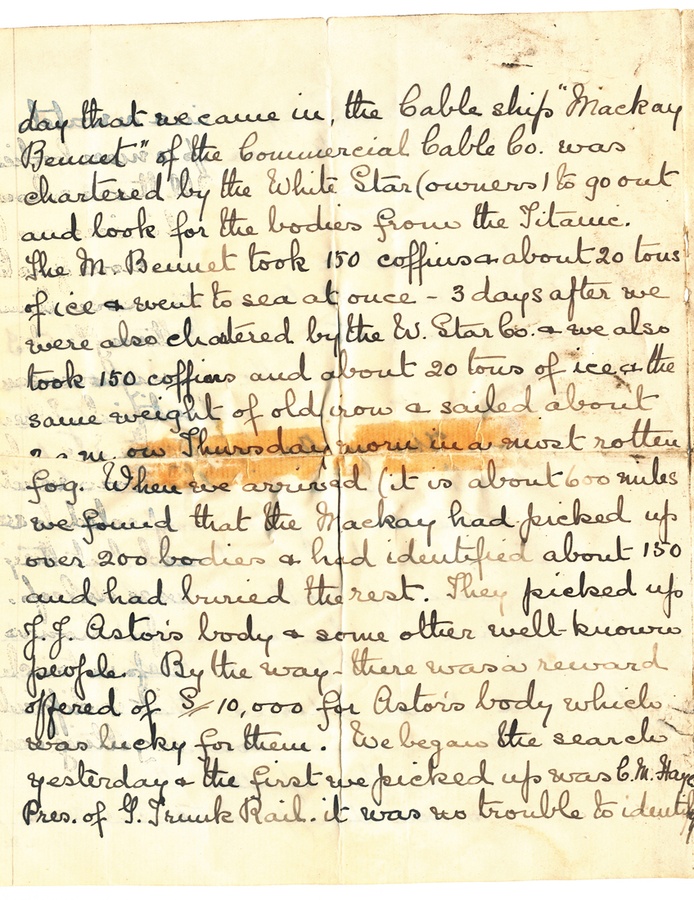 day that we came in, the Cable ship "Mackay
Bennet" of the Commercial Cable Co. was
chartered by the White Star (owners) to go out
and look for the bodies from the Titanic.
The M. Bennet took 150 coffins & about 20 tons
of ice & went to sea at once - 3 days after we
were also chartered by the W. Star Co. & we also
took 150 coffins and about 20 tons of ice & the
same weight of old iron & sailed about
a.m. on Thursday morn in a most rotten
fog. When we arrived (it is about 600 miles
we found that the Mackay had picked up
over 200 bodies & had identified about 150
and had buried the rest. They picked up
J. J. Astor's body & some other well-known
people. By the way - there was a reward
offered of $10,000 for Astor's body which
was lucky for them. We began the search
yesterday & the first we picked up was C. M. Hays
Pres. of G. Trunk Rail. it was no trouble to identify